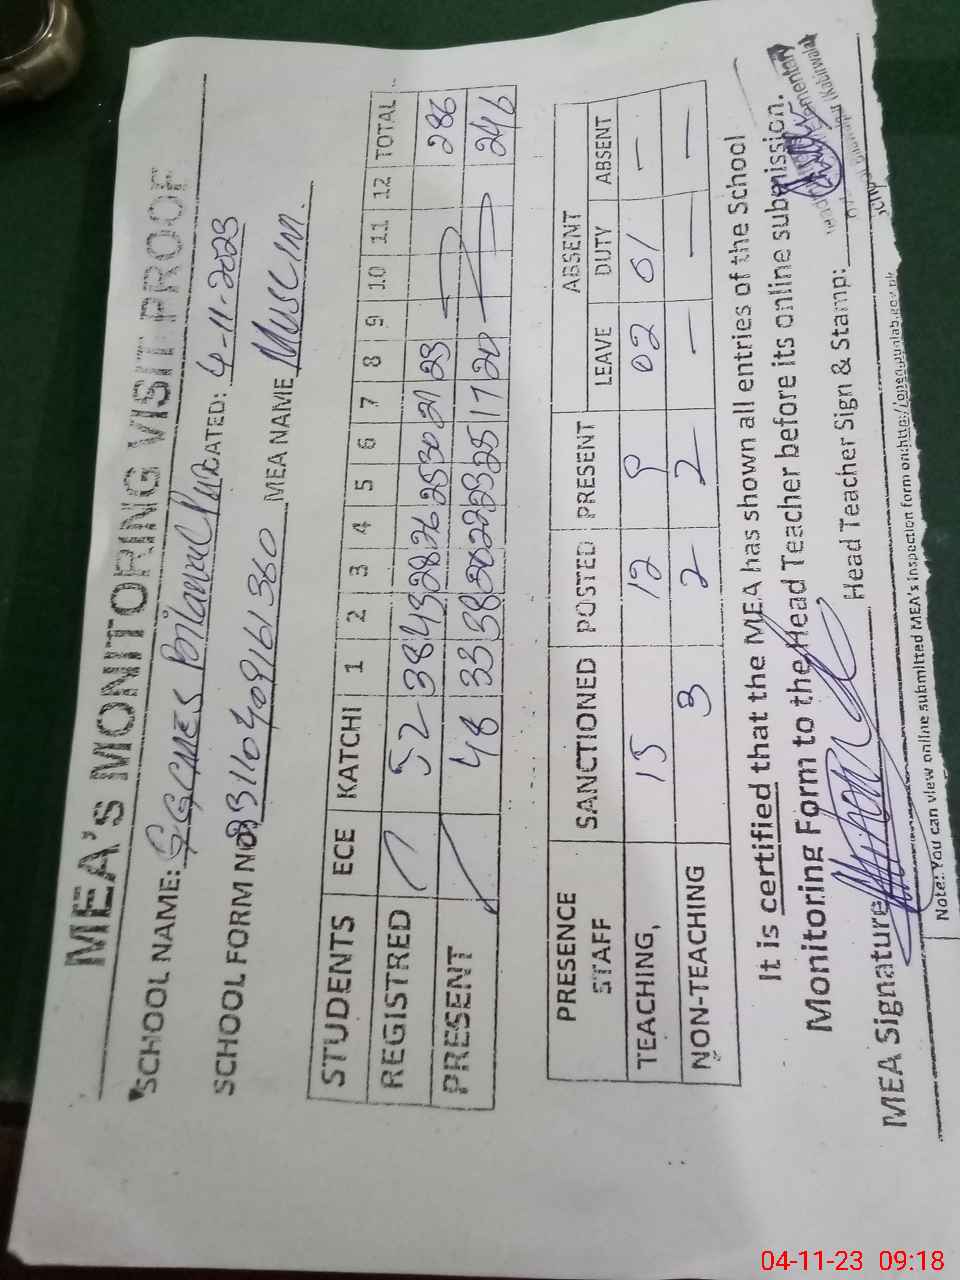 MEA's MONITORING VISIT PROOF
SCHOOL NAME: DATED: 4-11-2023
SCHOOL FORM NO MEA NAME
STUDENTS ECE KATCHI 1 2 3 4 5 6 7 8 9 10 11 12 TOTAL
REGISTRED 52 38 43 28 26 25 30 21 23 286
PRESENT 48 33 38 20 22 23 25 17 20 246
PRESENCE STAFF SANCTIONED POSTED PRESENT ABSENT
LEAVE DUTY ABSENT
TEACHING, 15 12 9 02 01 —
NON-TEACHING 3 2 2 — — —
It is certified that the MEA has shown all entries of the School
Monitoring Form to the Head Teacher before its online submission.
MEA Signature Head Teacher Sign & Stamp:
Note: You can view online submitted MEA's inspection form on:http://open.punjab.gov.pk
04-11-23 09:18